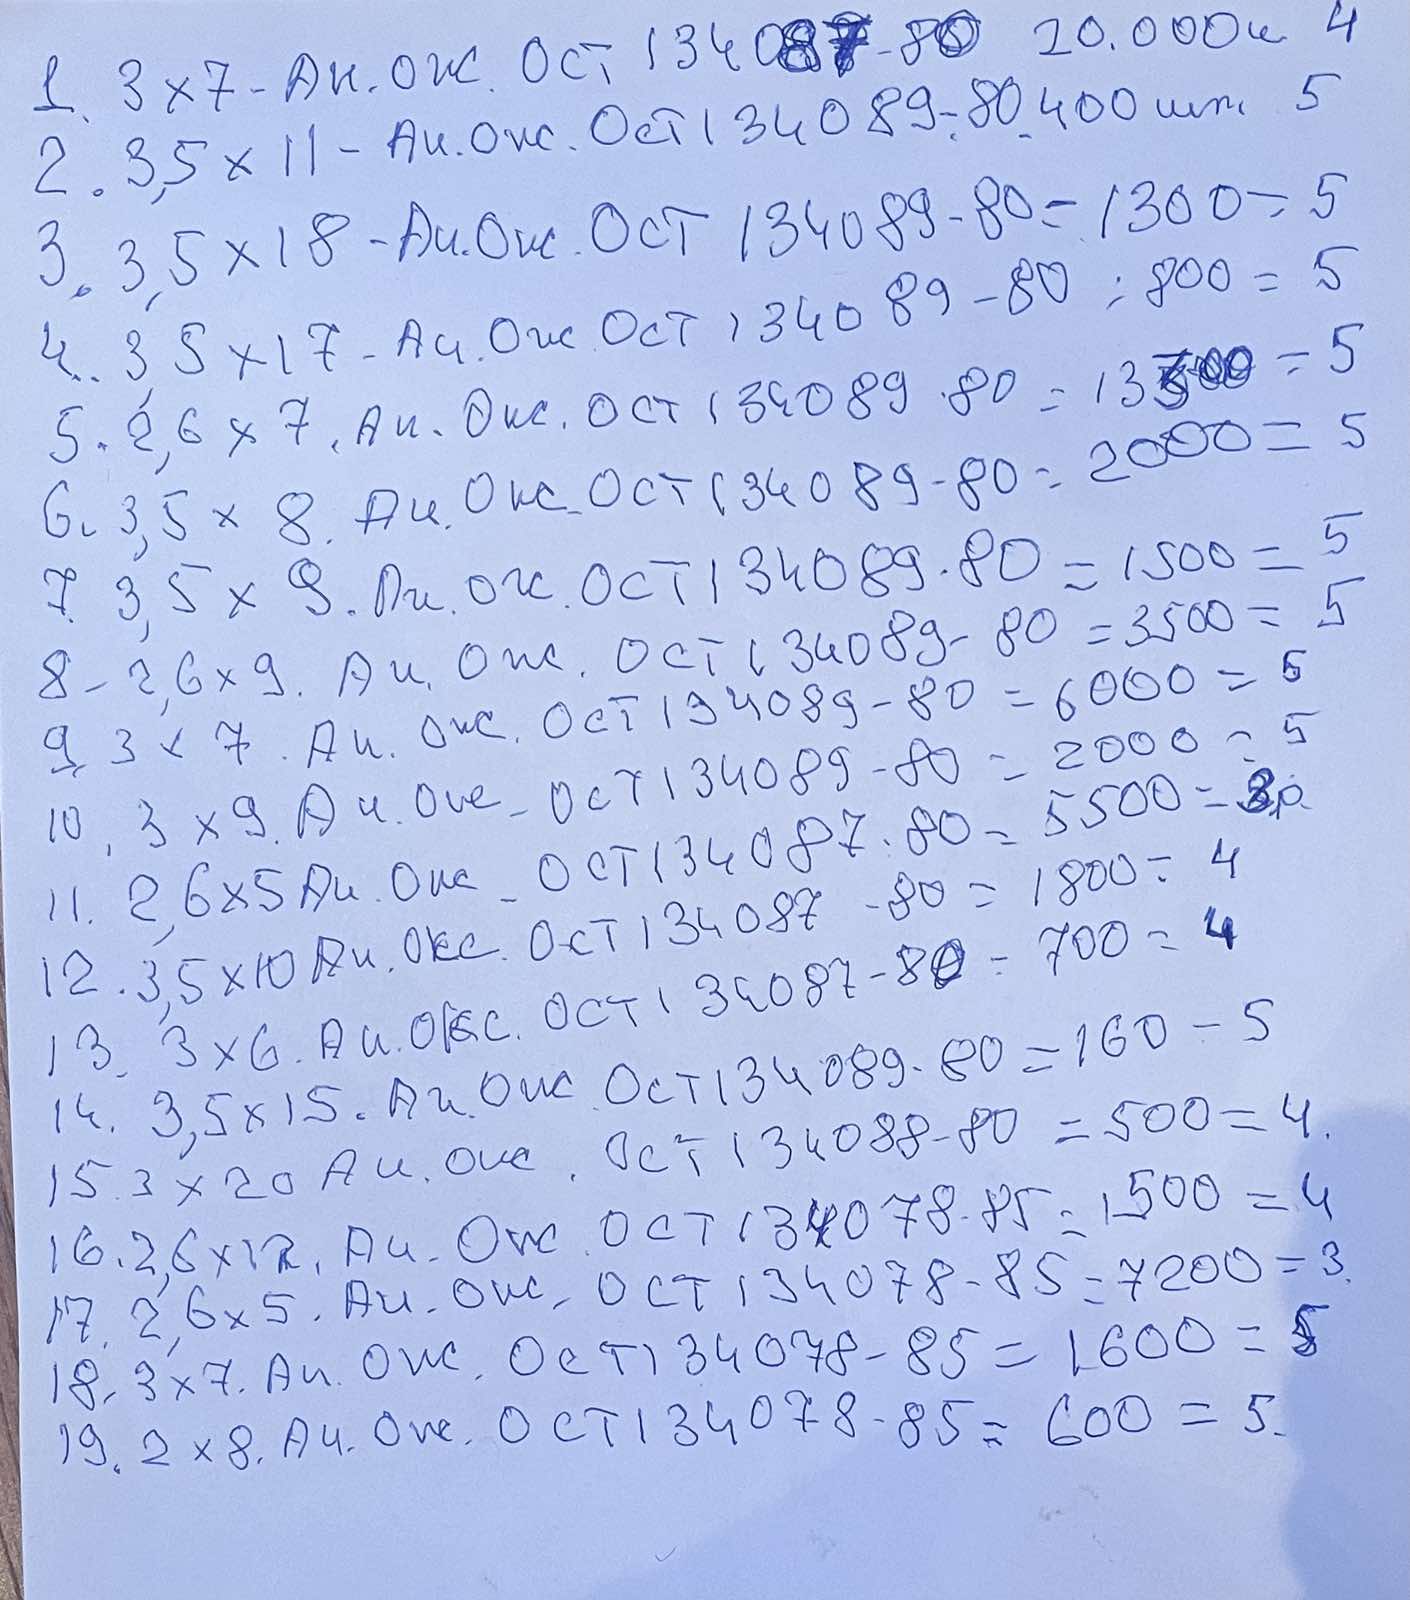 1. 3x7 - Ан. Окс. ОСТ 134087-80 20.000ш 4
2. 3,5x11 - Ан. Окс. ОСТ 134089-80. 400 шт. 5
3. 3,5x18 - Ан. Окс. ОСТ 134089-80 = 1300 = 5
4. 3,5x17 - Ан. Окс. ОСТ 134089-80 = 800 = 5
5. 2,6x7. Ан. Окс. ОСТ 134089-80 = = 5
6. 3,5x8. Ан. Окс. ОСТ 134089-80 = 2000 = 5
7. 3,5x9. Ан. Окс. ОСТ 134089-80 = 1500 = 5
8 - 2,6x9. Ан. Окс. ОСТ 134089-80 = 3500 = 5
9. 3x7. Ан. Окс. ОСТ 134089-80 = 6000 = 5
10. 3x9. Ан. Окс - ОСТ 134089-80 = 2000 = 5
11. 2,6x5 Ан. Окс - ОСТ 134087-80 = 5500 = 3р.
12. 3,5x10 Ан. Окс. ОСТ 134087-80 = 1800 = 4
13. 3x6. Ан. Окс. ОСТ 134087-80 = 700 = 4
14. 3,5x15. Ан. Окс. ОСТ 134089-80 = 160 - 5
15. 3x20 Ан. Окс. ОСТ 134088-80 = 500 = 4.
16. 2,6x12. Ан. Окс. ОСТ 134078-85 = 1500 = 4
17. 2,6x5. Ан. Окс. ОСТ 134078-85 = 7200 = 3.
18. 3x7. Ан. Окс. ОСТ 134078-85 = 1600 = 5
19. 2x8. Ан. Окс. ОСТ 134078-85 = 600 = 5.